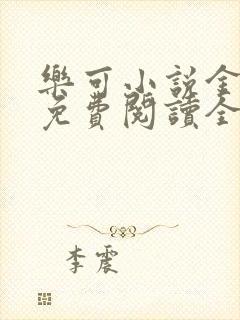 樂可小說全
免費閱讀全
李震